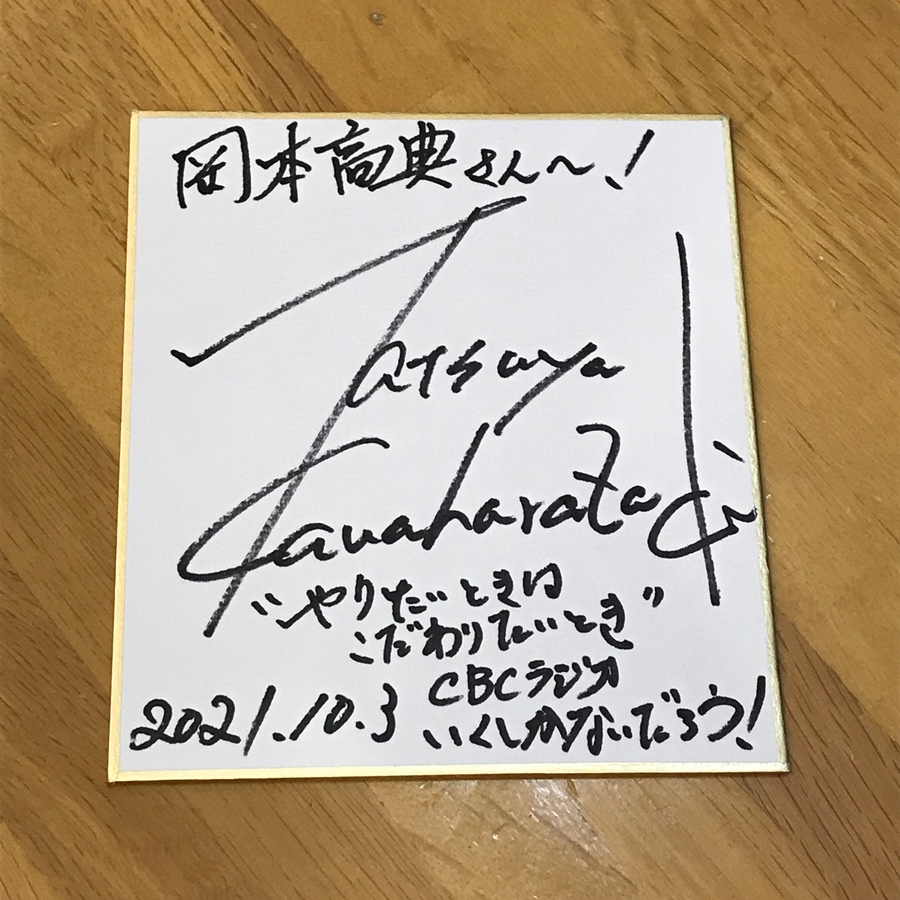 岡本高典さん〜!
Tatsuya
Kawaharazaki
"やりたいときは
こだわりたいとき"
CBCラジオ
いくしかないだろう!
2021.10.3